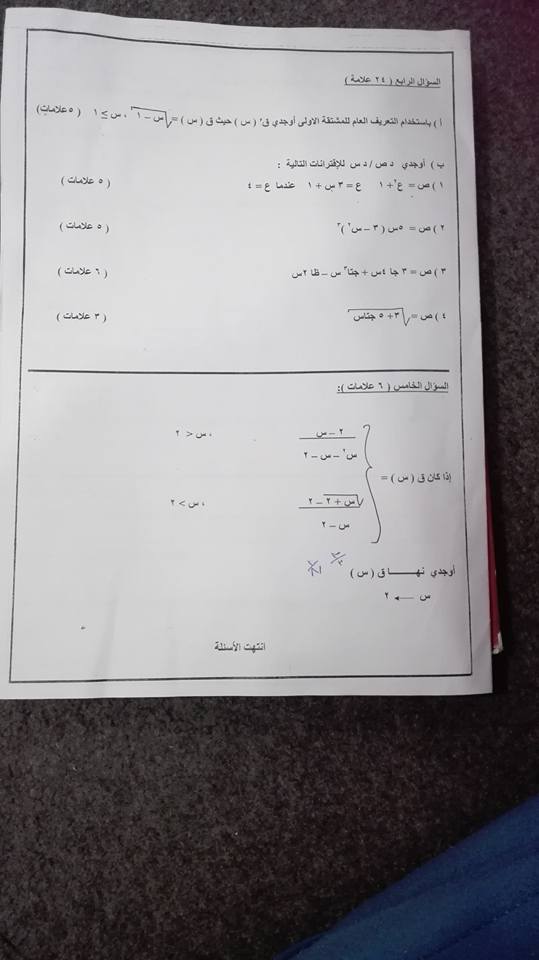 السؤال الرابع ( ٢٤ علامة )
أ ) باستخدام التعريف العام للمشتقة الاولى أوجدي ق' ( س ) حيث ق ( س ) = √س − ١ ، س ≥ ١ ( ٥ علامات)
ب ) أوجدي د ص / د س للإقترانات التالية :
١ ) ص = ع٢ + ١ ع = ٣ س + ١ عندما ع = ٤ ( ٥ علامات )
٢ ) ص = ٥س ( ٣ − س٢ )٣ ( ٥ علامات )
٣ ) ص = ٣ جا ٤س + جتا٣ س − ظا ٢س ( ٦ علامات )
٤ ) ص = √٣ + ٥ جتاس ( ٣ علامات )
السؤال الخامس ( ٦ علامات ):
٢ − س ، س < ٢
س٢ − س − ٢
إذا كان ق ( س ) =
√س + ٢ − ٢ ، س > ٢
س − ٢
أوجدي نهـــــا ق ( س )
س ← ٢
انتهت الأسئلة